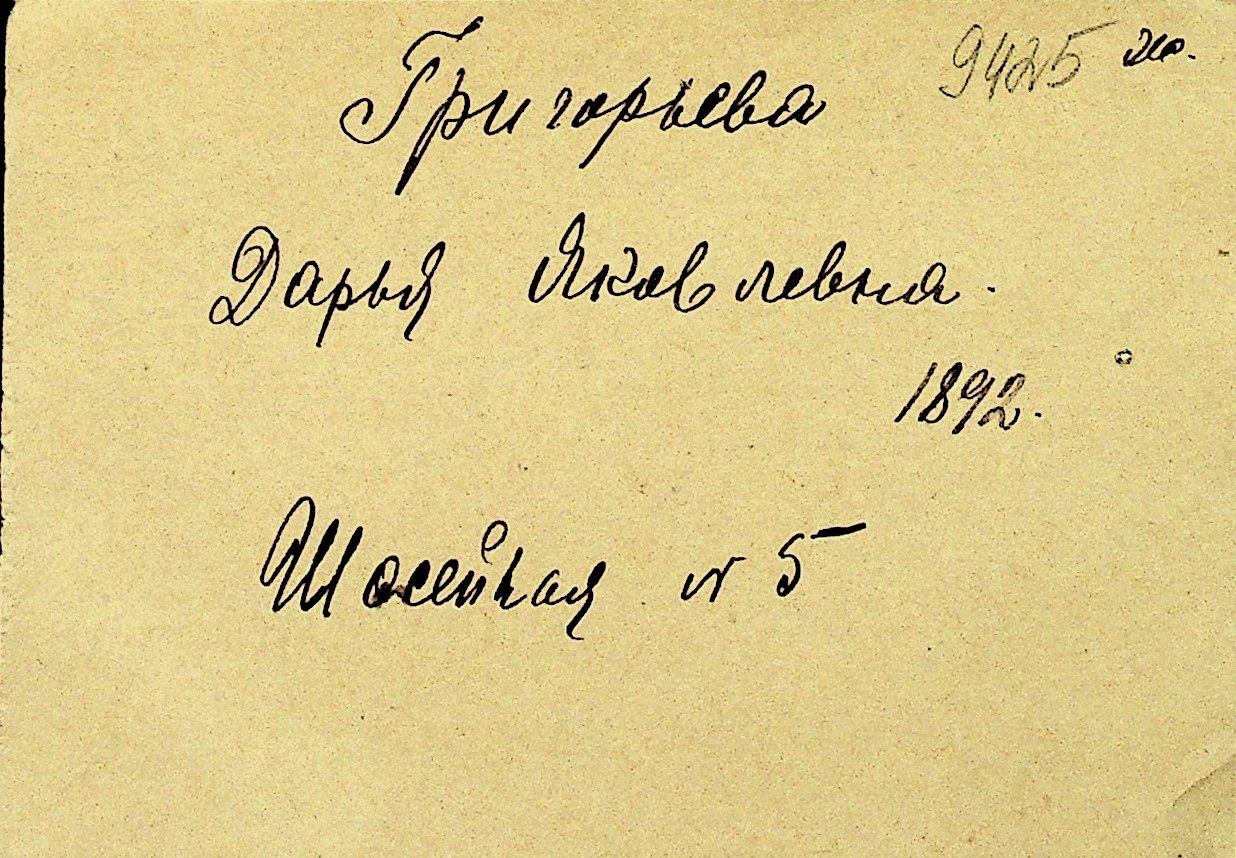 9425
Григорьева
Дарья Яковлевна.
1892.
Шосейная № 5